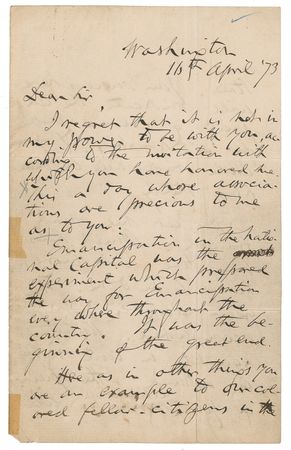 Washington
16th April '73
Dear Sir
I regret that it is not in
my power to be with you, ac-
cording to the invitation with
which you have honored me.
This is a day whose associa-
tions are precious to me
as to you.
Emancipation in the Natio-
nal Capital was the
experiment which prepared
the way for Emancipation
every where throughout the
country. It was the be-
ginning of the great end.
Here as in other things you
are an example to our col-
ored fellow-citizens in the